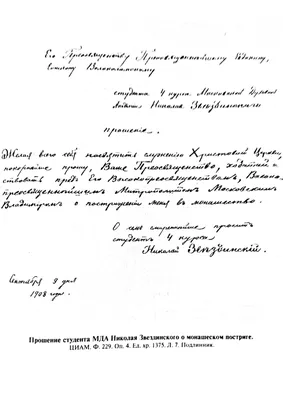 Его Преосвященству Преосвященнейшему Феодору,
Епископу Волоколамскому
студента 4 курса Московской Духовной
Академии Николая Звездинского
прошение.
Желая всего себя посвятить служению Христовой Церкви,
покорнейше прошу, Ваше Преосвященство, ходатай-
ствовать пред Его Высокопреосвященством, Высоко-
преосвященнейшим Митрополитом Московским
Владимиром о пострижении меня в монашество.
О сем смиреннейше просит
студент 4 курса
Николай Звездинский.
Сентября 9 дня
1908 года.
Прошение студента МДА Николая Звездинского о монашеском постриге.
ЦИАМ. Ф. 229. Оп. 4. Ед. хр. 1375. Л. 7. Подлинник.